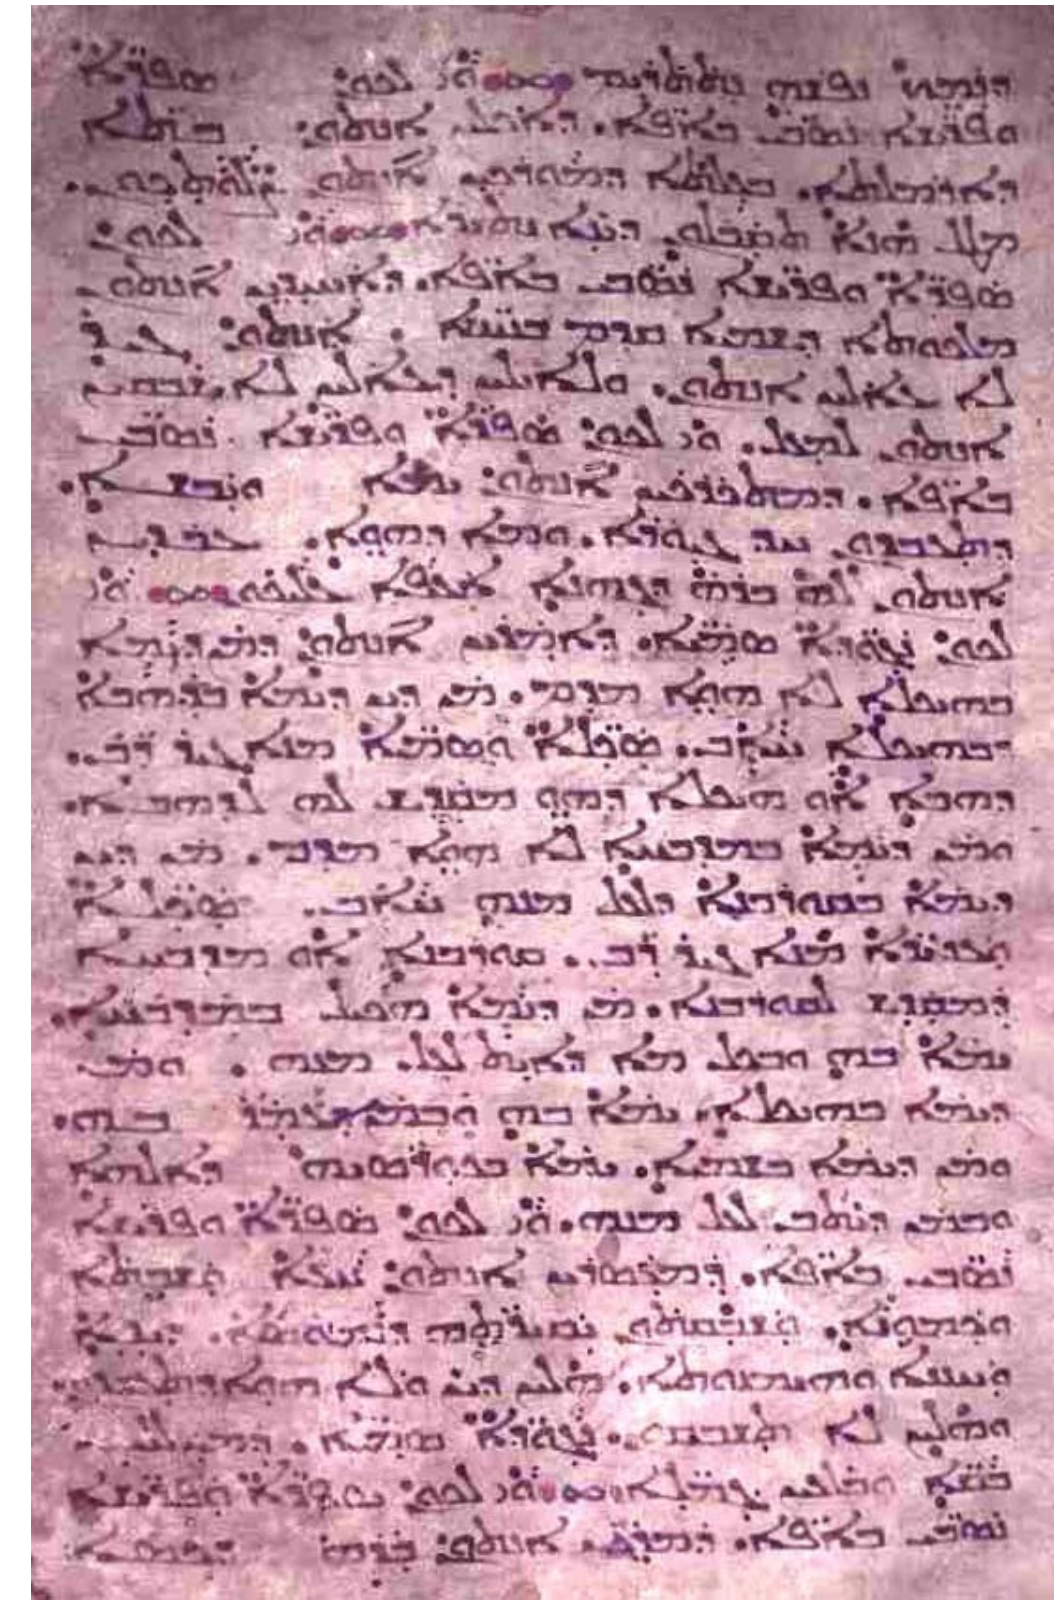 ܕܢܡܟ ܢܦܫܗ ܢܬܬܪܝܡ܀ ܘܝ ܠܟܘܢ ܣܦܪܐ
ܘܦܪܝܫܐ ܢܣܒܝ ܒܐܦܐ. ܕܐܟܠܝܢ ܐܢܬܘܢ ܒܬܐ
ܕܐܪܡܠܬܐ. ܒܥܠܬܐ ܕܡܘܪܟܝܢ ܐܢܬܘܢ ܨܠܘܬܟܘܢ.
ܡܛܠ ܗܢܐ ܬܩܒܠܘܢ ܕܝܢܐ ܝܬܝܪܐ܀ ܘܝ ܠܟܘܢ
ܣܦܪܐ ܘܦܪܝܫܐ ܢܣܒܝ ܒܐܦܐ. ܕܐܚܝܕܝܢ ܐܢܬܘܢ
ܡܠܟܘܬܐ ܕܫܡܝܐ ܩܕܡ ܒܢܝܢܫܐ. ܐܢܬܘܢ ܓܝܪ
ܠܐ ܥܐܠܝܢ ܐܢܬܘܢ. ܘܠܐܝܠܝܢ ܕܥܐܠܝܢ ܠܐ ܫܒܩܝܢ
ܐܢܬܘܢ ܠܡܥܠ. ܘܝ ܠܟܘܢ ܣܦܪܐ ܘܦܪܝܫܐ ܢܣܒܝ
ܒܐܦܐ. ܕܡܬܟܪܟܝܢ ܐܢܬܘܢ ܝܡܐ ܘܝܒܫܐ.
ܕܬܥܒܕܘܢ ܚܕ ܓܝܘܪܐ. ܘܡܐ ܕܗܘܐ. ܥܒܕܝܢ
ܐܢܬܘܢ ܠܗ ܒܪܗ ܕܓܗܢܐ ܐܥܦܐ ܥܠܝܟܘܢ܀ ܘܝ
ܠܟܘܢ ܢܓܘܕܐ ܣܡܝܐ. ܕܐܡܪܝܢ ܐܢܬܘܢ ܕܡܢ ܕܝܡܐ
ܒܗܝܟܠܐ ܠܐ ܗܘܐ ܡܕܡ. ܡܢ ܕܝܢ ܕܝܡܐ ܒܕܗܒܐ
ܕܒܗܝܟܠܐ ܚܐܒ. ܣܟܠܐ ܘܣܡܝܐ ܡܢܐ ܓܝܪ ܪܒ.
ܕܗܒܐ ܐܘ ܗܝܟܠܐ ܕܗܘ ܡܩܕܫ ܠܗ ܠܕܗܒܐ.
ܘܡܢ ܕܝܡܐ ܒܡܕܒܚܐ ܠܐ ܗܘܐ ܡܕܡ. ܡܢ ܕܝܢ
ܕܝܡܐ ܒܩܘܪܒܢܐ ܕܠܥܠ ܡܢܗ ܚܐܒ. ܣܟܠܐ
ܘܥܘܝܪܐ ܡܢܐ ܓܝܪ ܪܒ. ܩܘܪܒܢܐ ܐܘ ܡܕܒܚܐ
ܕܡܩܕܫ ܠܩܘܪܒܢܐ. ܡܢ ܕܝܡܐ ܗܟܝܠ ܒܡܕܒܚܐ.
ܝܡܐ ܒܗ ܘܒܟܠ ܡܐ ܕܐܝܬ ܠܥܠ ܡܢܗ. ܘܡܢ
ܕܝܡܐ ܒܗܝܟܠܐ. ܝܡܐ ܒܗ ܘܒܡܢ ܕܥܡܪ ܒܗ.
ܘܡܢ ܕܝܡܐ ܒܫܡܝܐ. ܝܡܐ ܒܟܘܪܣܝܗ ܕܐܠܗܐ
ܘܒܡܢ ܕܝܬܒ ܠܥܠ ܡܢܗ. ܘܝ ܠܟܘܢ ܣܦܪܐ ܘܦܪܝܫܐ
ܢܣܒܝ ܒܐܦܐ. ܕܡܥܣܪܝܢ ܐܢܬܘܢ ܢܢܥܐ ܘܫܒܬܐ
ܘܟܡܘܢܐ. ܘܫܒܩܬܘܢ ܝܩܝܪܬܗ ܕܢܡܘܣܐ. ܕܝܢܐ
ܘܚܢܢܐ ܘܗܝܡܢܘܬܐ. ܗܠܝܢ ܕܝܢ ܘܠܐ ܗܘܐ ܕܬܥܒܕܘܢ
ܘܗܠܝܢ ܠܐ ܬܫܒܩܘܢ. ܢܓܘܕܐ ܣܡܝܐ. ܕܡܨܠܠܝܢ
ܒܩܐ ܘܒܠܥܝܢ ܓܡܠܐ܀ ܘܝ ܠܟܘܢ ܣܦܪܐ ܘܦܪܝܫܐ
ܢܣܒܝ ܒܐܦܐ. ܕܡܕܟܝܢ ܐܢܬܘܢ ܒܪܗ